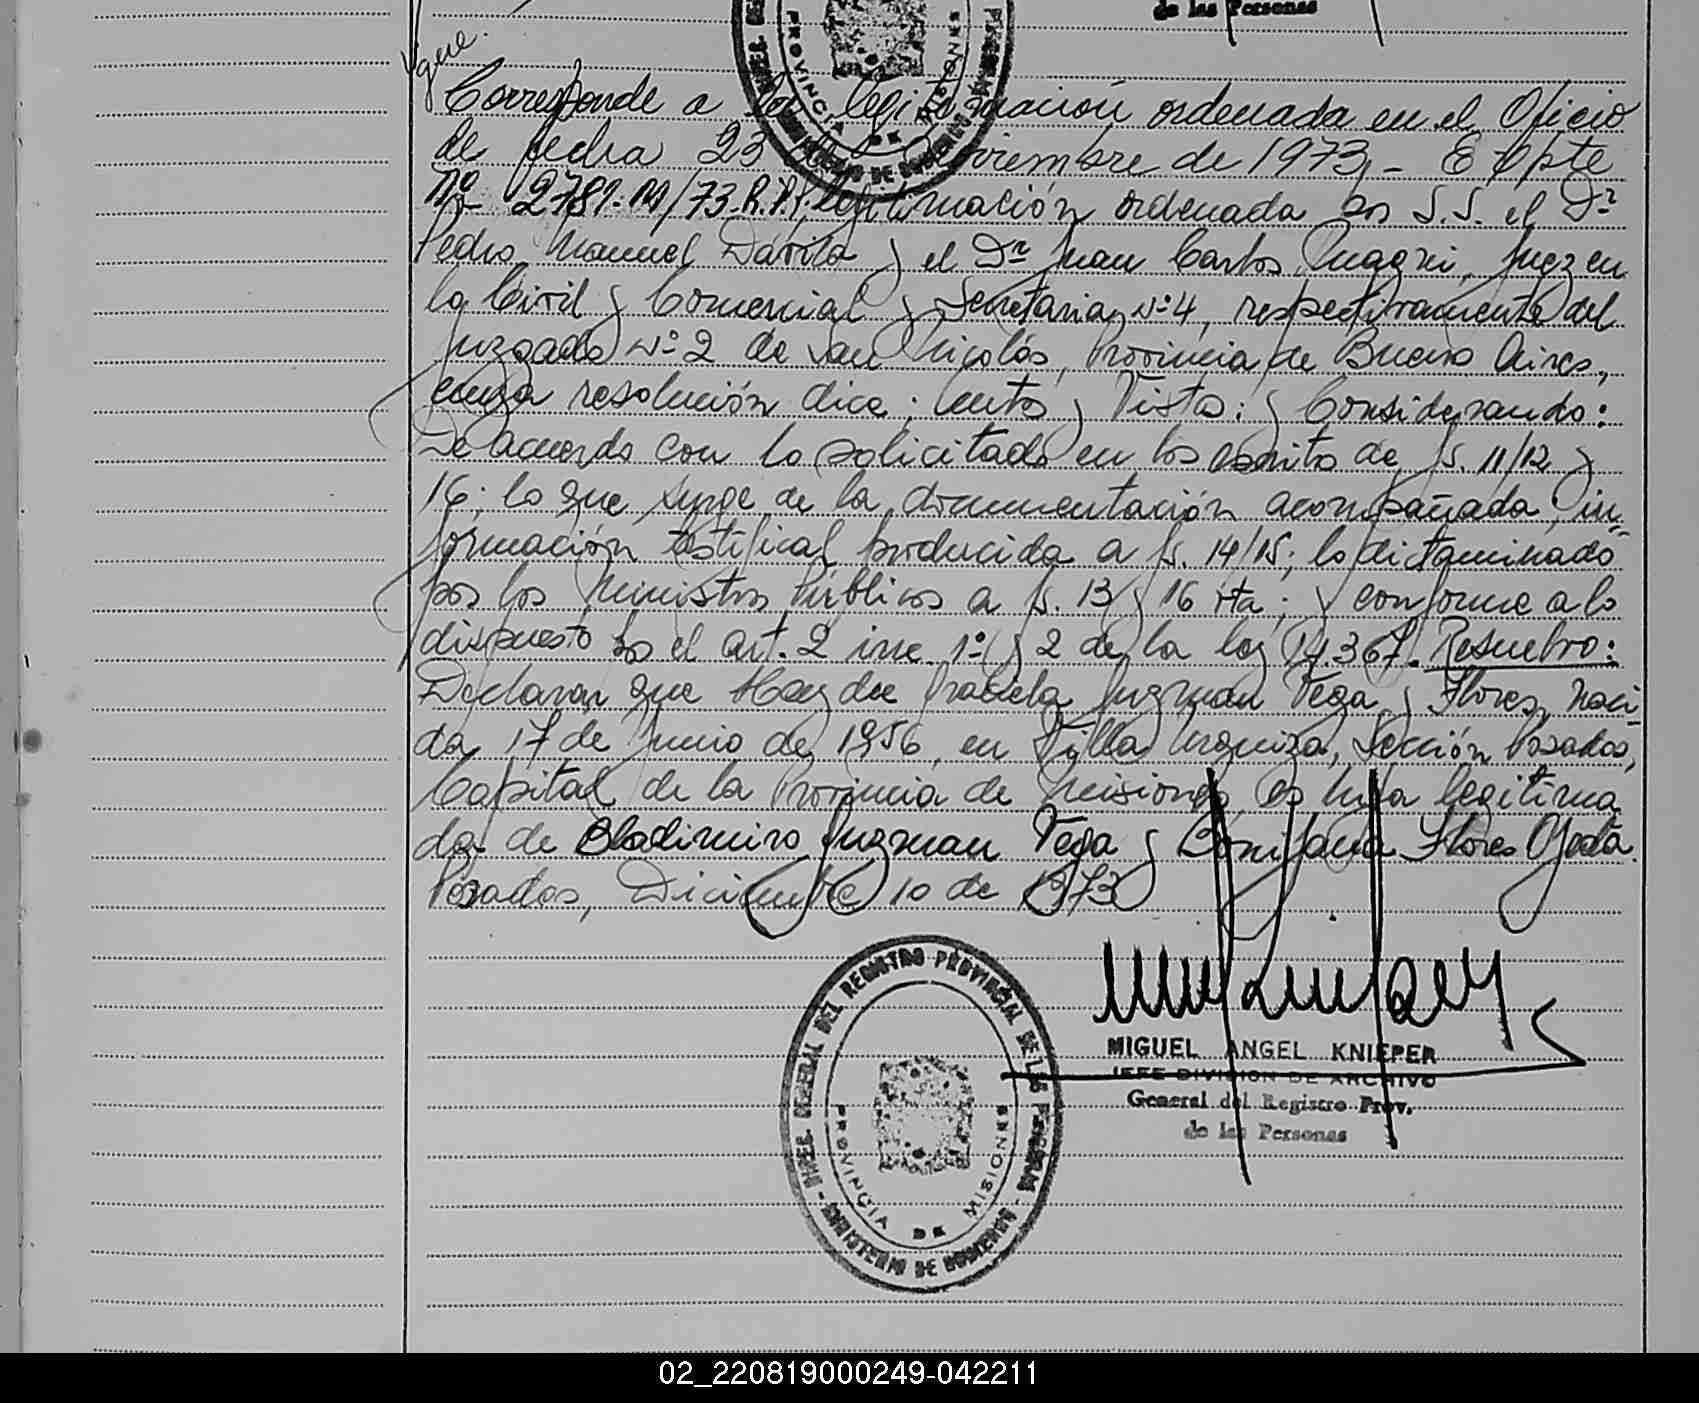 de las Personas
PROVINCIA DE MISIONES
que.
Corresponde a la legitimación ordenada en el Oficio
de fecha 23 de Noviembre de 1973,- Expte
Nº 2781-M/73-R.P.P. legitimación ordenada por S.S. el Dr
Pedro Manuel Dávila y el Dr Juan Carlos , Juez en
lo Civil y Comercial y Secretaria, Nº 4, respectivamente del
Juzgado Nº 2 de San Nicolás, Provincia de Buenos Aires,
cuya resolución dice: Autos y Vistos: y Considerando:
De acuerdo con lo solicitado en los escritos de fs. 11/12 y
16; lo que surge de la documentación acompañada, in-
formación testifical producida a fs. 14/15; lo dictaminado
por los Ministros Públicos a fs. 13 y 16 vta; y conforme a lo
dispuesto por el art. 2 inc. 1º y 2 de la ley 14.367. Resuelvo:
Declarar que Haydee Graciela Guzman Vega y Flores, naci-
da 17 de Junio de 1956, en Villa Urquiza, Sección Posadas,
Capital de la Provincia de Misiones, es hija legitima
da de Bladimiro Guzman Vega y Bonifacia Flores Ojeda.
Posadas, Diciembre 10 de 1973
DIREC. GENERAL DEL REGISTRO PROVINCIAL DE LAS PERSONAS - MINISTERIO DE GOBIERNO -
PROVINCIA DE MISIONES
MIGUEL ANGEL KNIEPER
JEFE DIVISION DE ARCHIVO
General del Registro Prov.
de las Personas
02_220819000249-042211